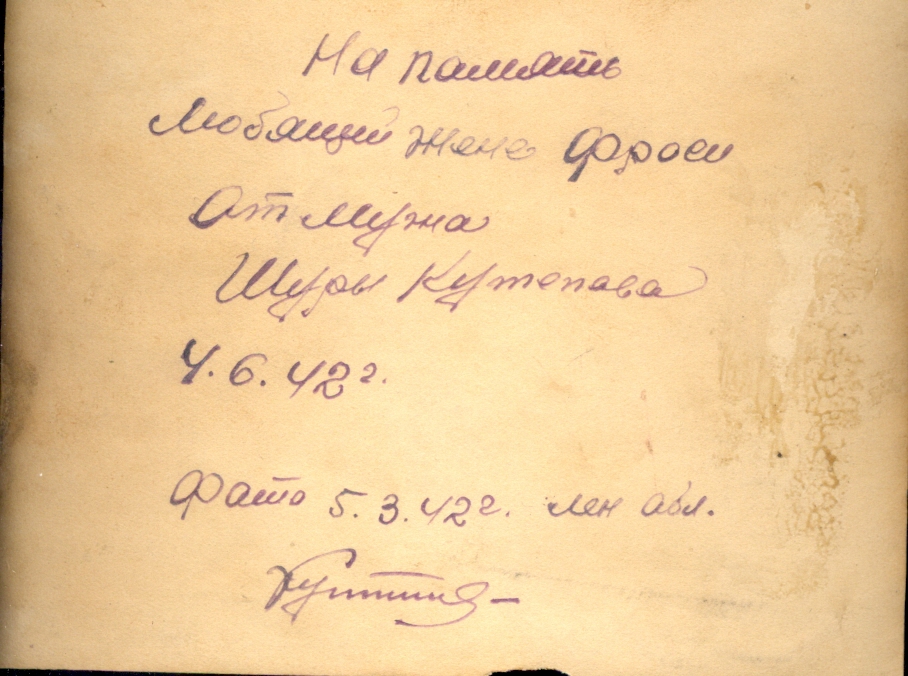 На память
Любящий жене Фроси
От мужа
Шуры Кутепова
4.6.42 г.
Фато 5.3.42 г. лен обл.